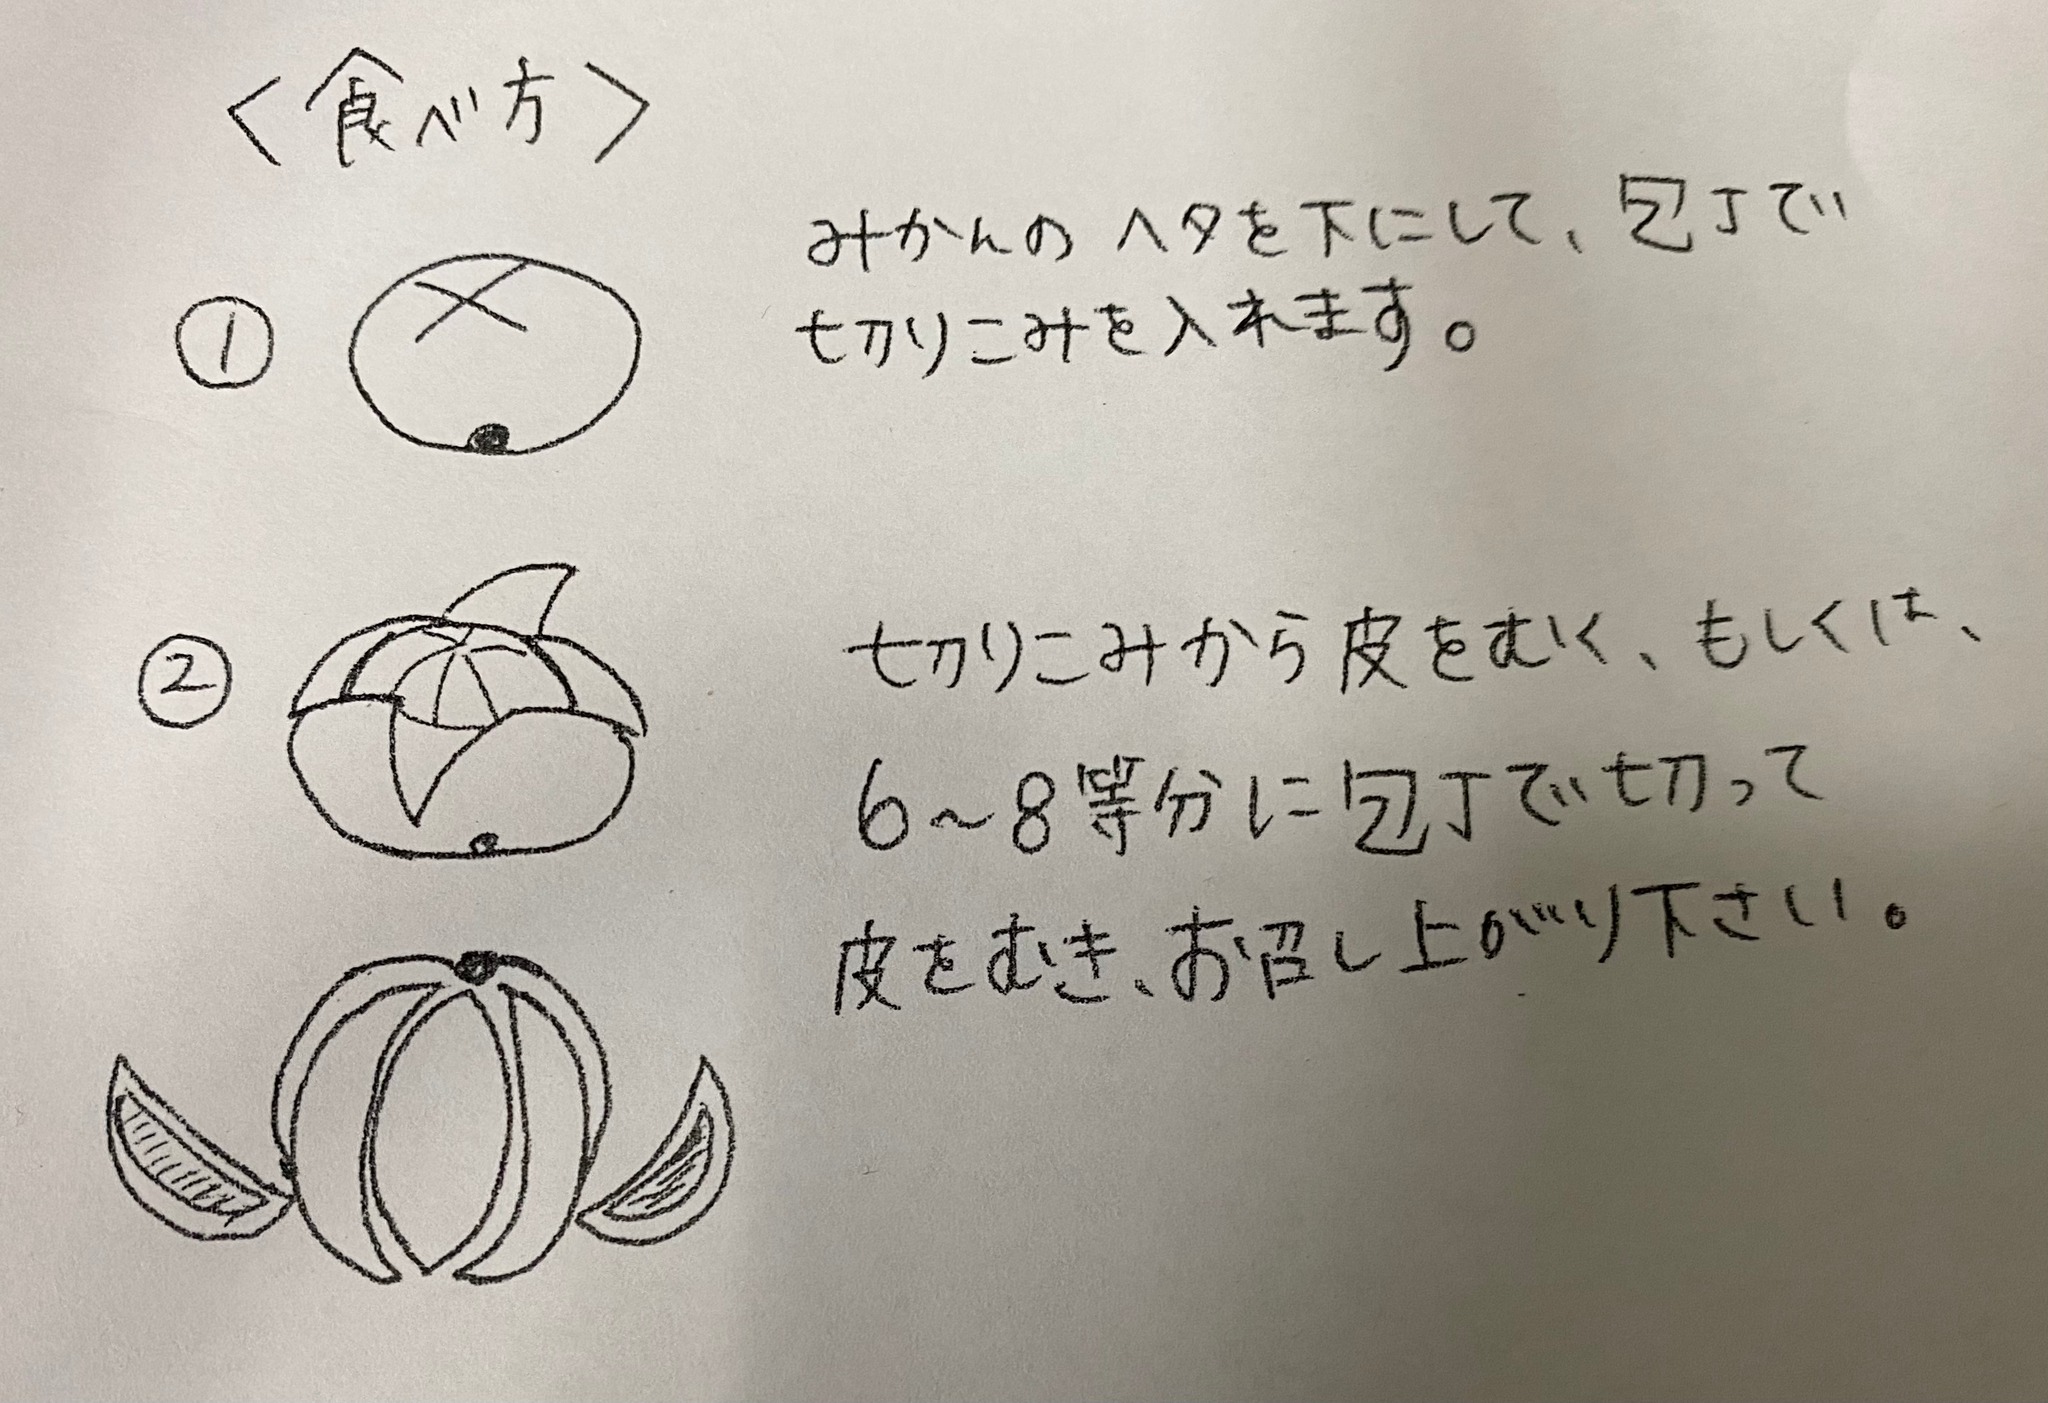 〈食べ方〉
① みかんのヘタを下にして、包丁で
切りこみを入れます。
② 切りこみから皮をむく、もしくは、
6～8等分に包丁で切って
皮をむき、お召し上がり下さい。